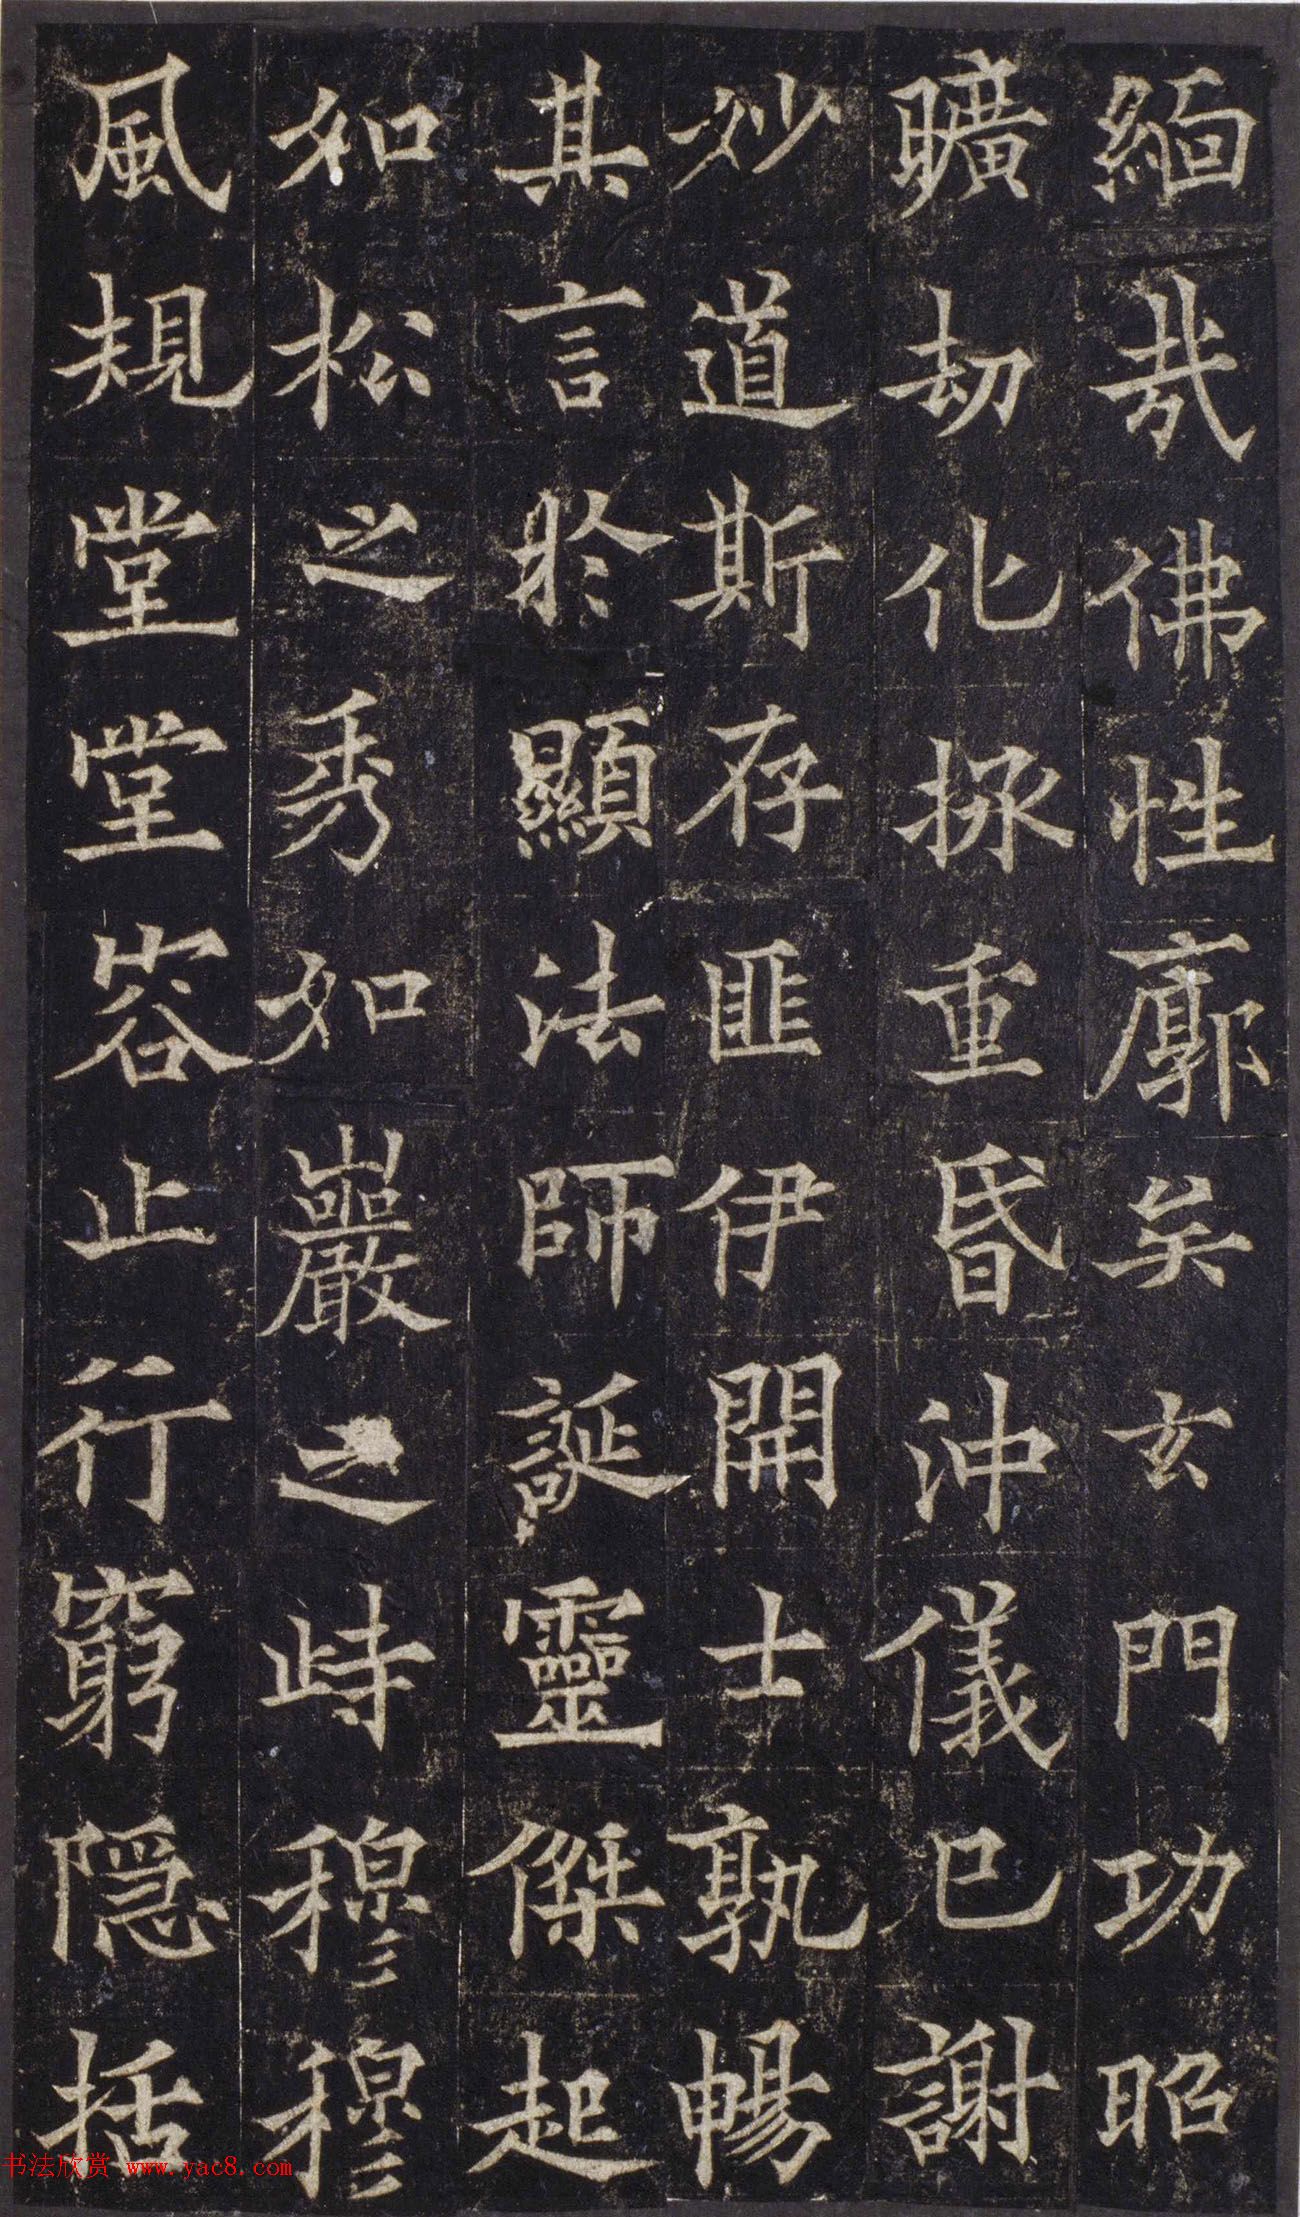 緬哉佛性廓矣玄門功昭
曠劫化拯重昏沖儀已謝
妙道斯存匪伊開士孰暢
其言於顯法師誕靈傑起
如松之秀如巖之峙穆穆
風規堂堂容止行窮隱括
书法欣赏 www.yac8.com